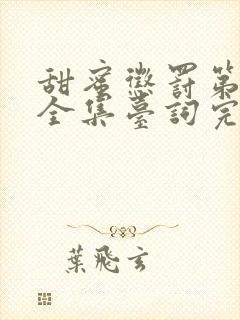 甜蜜懲罰第
全集臺詞完
葉飛玄